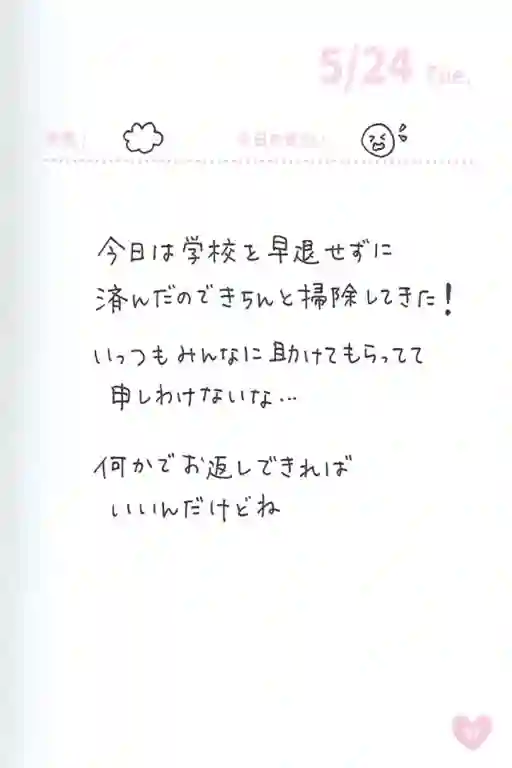 5/24 Tue.
今日は学校を早退せずに
済んだのできちんと掃除してきた!
いっつもみんなに助けてもらってて
申しわけないな…
何かでお返しできれば
いいんだけどね